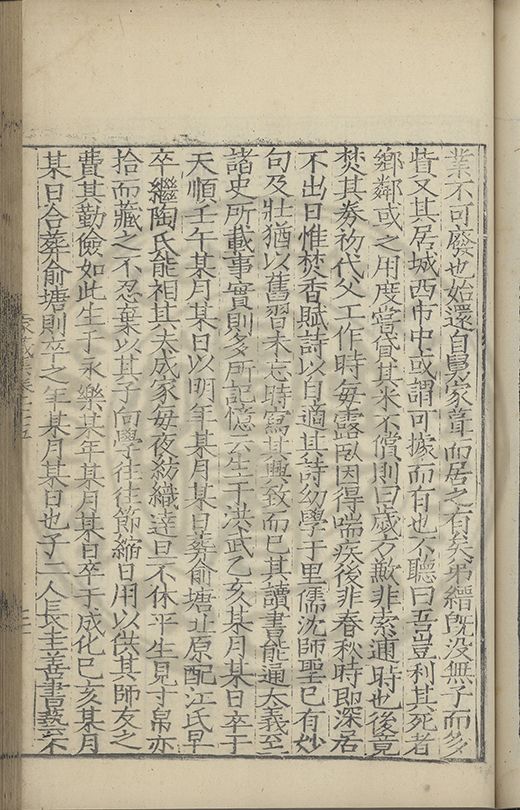 業不可廢也始還自舅家葺而居之有矣弟縉旣沒無子而多
貲又其居城西市中或謂可據而有也不聽曰吾豈利其死者
鄉鄰或之用度嘗貸其米不償則曰歲方歉非索逋時也後竟
焚其券初代父工作時每露臥因得喘疾後非春秋時即深居
不出日惟焚香賦詩以自適其詩幼學于里儒沈師聖已有妙
句及壯猶以舊習未忘時寫其興致而已其讀書能通大義至
諸史所載事實則多所記憶云生于洪武乙亥某月某日卒于
天順壬午某月某日以明年某月某日葬俞塘北原配江氏早
卒繼陶氏能相其夫成家每夜紡織達旦不休平生見寸帛亦
拾而藏之不忍棄以其子向學往往節縮日用以供其師友之
費其勤儉如此生于永樂某年某月某日卒于成化己亥某月
某日合葬俞塘則卒之年某月某日也子二人長圭善書藝不
家藏集卷